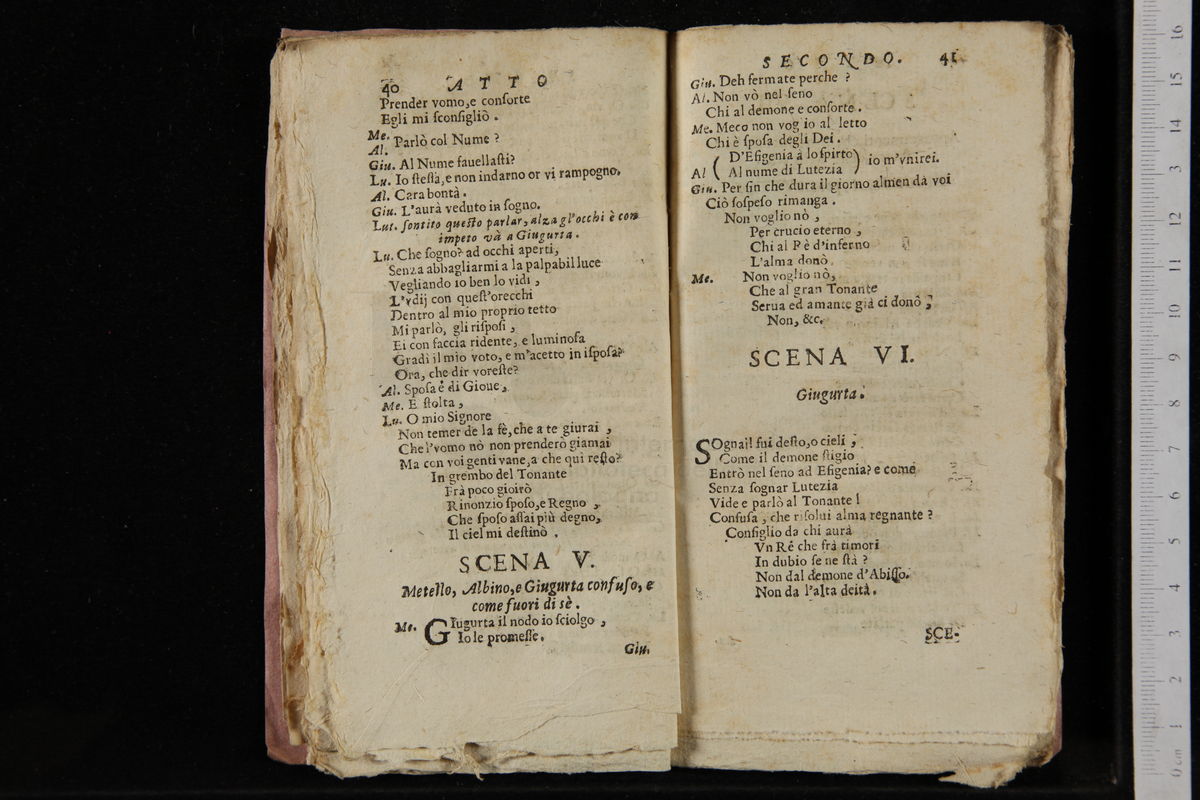 40 ATTO
Prender vomo,e consorte
Egli mi sconsigliò.
Me.
Al. Parlò col Nume?
Giu. Al Nume fauellaſti?
Lu. Io ſteſſa,e non indarno or vi rampogno,
Al. Cara bontà.
Giu. L'aurà veduto in ſogno.
Lut. ſentito queſto parlar, alza gl'occhi è con
impeto và a Giugurta.
Lu. Che ſogno? ad occhi aperti,
Senza abbagliarmi a la palpabil luce
Vegliando io ben lo vidi,
L'vdij con queſt'orecchi
Dentro al mio proprio tetto
Mi parlò, gli riſpoſi,
Ei con faccia ridente, e luminoſa
Gradì il mio voto, e m'acetto in iſpoſa?
Ora, che dir voreſte?
Al. Spoſa é di Gioue,
Me. E ſtolta,
Lu. O mio Signore
Non temer de la fè,che a te giurai,
Che l'vomo nò non prenderò giamai
Ma con voi genti vane,a che quì reſto?
In grembo del Tonante
Frà poco gioirò
Rinonzio ſpoſo,e Regno,
Che ſpoſo aſſai più degno,
Il ciel mi deſtinò.
SCENA V.
Metello, Albino,e Giugurta confuſo, e
come fuori di sè.
Me. GIugurta il nodo io ſciolgo,
Io le promeſſe.
Giu.
SECONDO. 41
Giu. Deh fermate perche?
Al. Non vò nel ſeno
Chi al demone e conſorte.
Me. Meco non voglio al letto
Chi è ſpoſa degli Dei.
( D'Efigenia a lo ſpirto)
Al ( Al nume di Lutezia ) io m'vnirei.
Giu. Per ſin che dura il giorno almen dà voi
Ciò ſoſpeſo rimanga.
Non voglio nò,
Per crucio eterno,
Chi al Rè d'inferno
L'alma donò.
Me. Non voglio nò,
Che al gran Tonante
Serua ed amante già ci donò;
Non, &c.
SCENA VI.
Giugurta.
SOgnai! fui deſto,o cieli;
Come il demone ſtigio
Entrò nel ſeno ad Efigenia? e come
Senza ſognar Lutezia
Vide e parlò al Tonante!
Confuſa, che riſolui alma regnante?
Conſiglio da chi aurà
Vn Ré che frà timori
In dubio ſe ne ſtà?
Non dal demone d'Abiſſo.
Non da l'alta deità.
SCE-